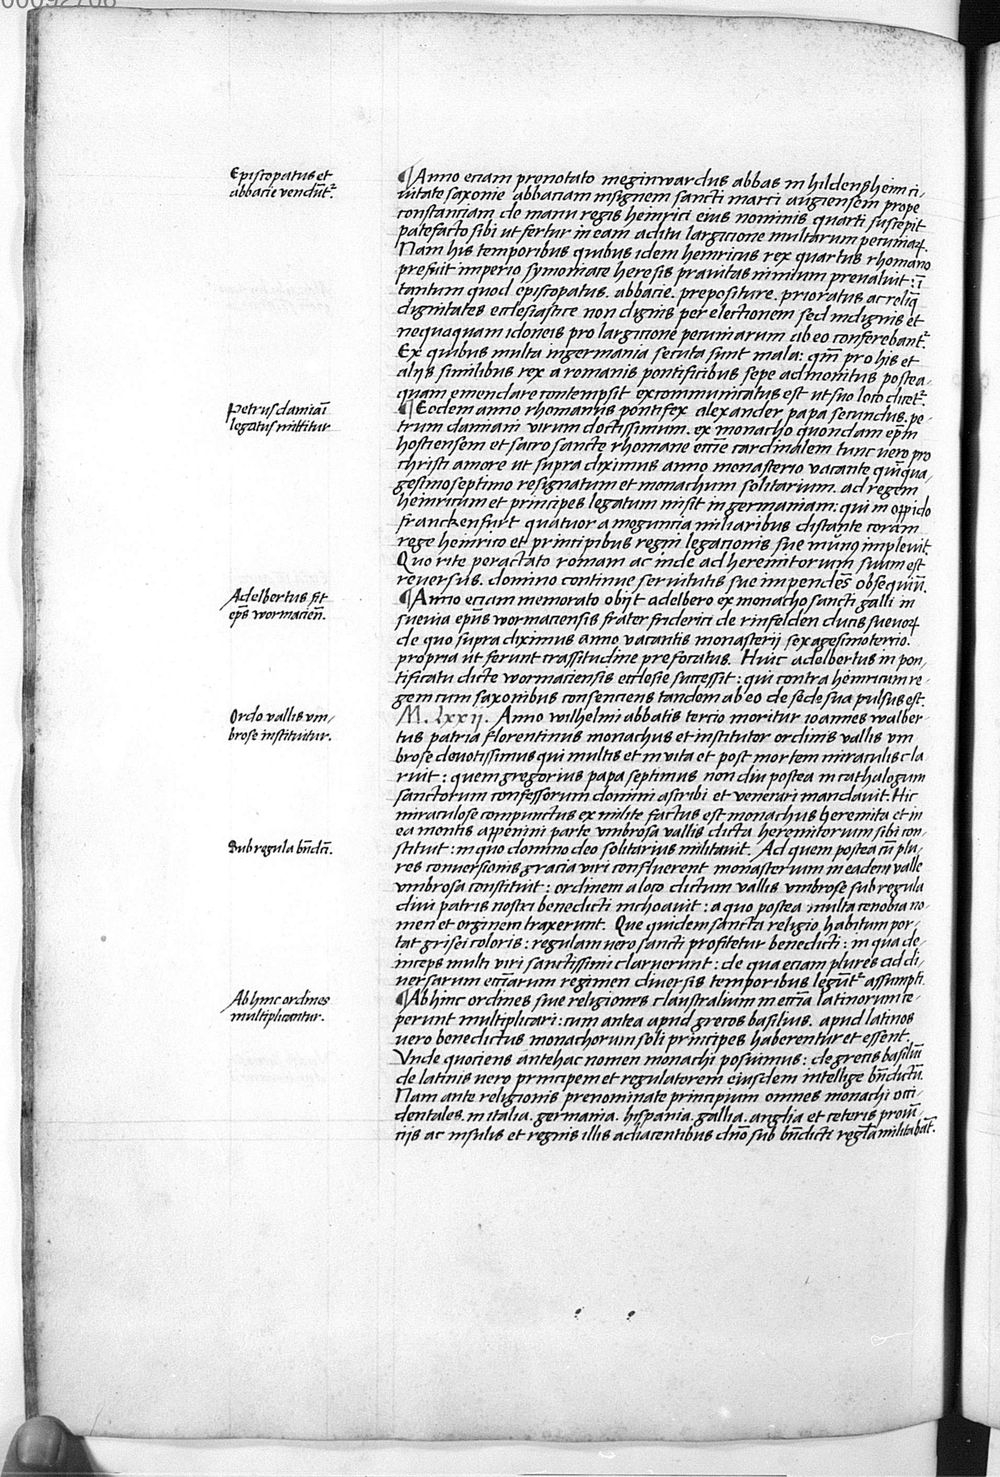 00092708
Episcopatus et
abbacie vendūtr̄.
¶Anno eciam prenotato meginwardus abbas in hildensheim ci,
uitate saxonie abbaciam insignem sancti marci augiensem prope
constanciam de manu regis heinrici eius nominis quarti suscepit
patefacto sibi ut fertur in eam aditu largicione multarum pecuniaꝝ.
Nam his temporibus quibus idem heinricus rex quartus rhomano
prefuit imperio symoniace heresis prauitas nimium preualuit: ī
tantum quod episcopatus. abbacie. prepositure. prioratus ac reliq̄
dignitates ecclesiastice non dignis per electionem sed indignis et
nequaquam idoneis pro largicione pecuniarum ab eo conferebantr̄.
Ex quibus multa in germania secuta sunt mala: qm̄ pro his et
alijs similibus rex a romanis pontificibus sepe admonitus postea,
quam emendare contempsit excommunicatus est ut suo loco dicetr̄.
Petrus damiaī
legatus mittitur
¶Eodem anno rhomanus pontifex alexander papa secundus. pe,
trum damiani virum doctissimum. ex monacho quondam ep̄m
hostiensem et sacro sancte rhomane eccīe cardinalem tunc uero pro
christi amore ut supra diximus anno monasterio vacante quīqua,
gesimoseptimo resignatum et monachum solitarium. ad regem
heinricum et principes legatum misit in germaniam: qui in oppido
franckenfurt quatuor a moguncia miliaribus distante coram
rege heinrico et principibus regni legacionis sue mūnꝰ impleuit.
Quo rite peractato romam ac inde ad heremitorum suum est
reuersus. domino continue seruitutis sue impendēs obsequiū.
Adelbertus fit
ep̄s wormacieñ.
¶Anno eciam memorato obijt adelbero ex monacho sancti galli in
sueuia ep̄us wormaciensis frater friderici de rinfelden ducis sueuoꝝ
de quo supra diximus anno vacantis monasterij sexagesimotercio.
propria ut ferunt crassitudine prefocatus. Huic adelbertus in pon,
tificatu dicte wormaciensis ecclesie successit: qui contra heinricum re,
gem cum saxonibus consenciens tandem ab eo de sede sua pulsus est.
Ordo vallis vm,
brose instituitur.
M. lxxij. Anno wilhelmi abbatis tercio moritur ioannes walber,
tus patria florentinus monachus et institutor ordinis vallis vm
brose deuotissimus qui multis et in vita et post mortem miraculis cla
ruit: quem gregorius papa septimus non diu postea in cathalogum
sanctorum confessorum domini ascribi et venerari mandauit. Hic
miraculose compunctus ex milite factus est monachus heremita et in
ea montis appenini parte vmbrosa vallis dicta heremitorium sibi con,
Sub regula bn̄dcī.
stituit: in quo domino deo solitarius militauit. Ad quem postea cū plu,
res conuersionis gracia viri confluerent monasterium in eadem valle
vmbrosa constituit: ordinem a loco dictum vallis vmbrose sub regula
diui patris nostri benedicti inchoauit: a quo postea multa cenobia no,
men et orginem traxerunt. Que quidem sancta religio habitum por,
tat grisei coloris: regulam uero sancti profitetur benedicti: in qua de,
inceps multi viri sanctissimi claruerunt: de qua eciam plures ad di,
uersarum eccīarum regimen diuersis temporibus legūtr̄ assumpti.
Abhinc ordines
multiplicantur.
¶Abhinc ordines siue religiones claustralium in eccīa latinorum ce,
perunt multiplicari: cum antea apud grecos basilius. apud latinos
uero benedictus monachorum soli principes haberentur et essent.
Vnde quociens antehac nomen monachi posuimus: de grecis basiliū
de latinis uero principem et regulatorem eiusdem intellige bn̄dictū.
Nam ante religionis prenominate principium omnes monachi occi,
dentales. in italia. germania. hispania. gallia. anglia et ceteris prouī,
cijs ac insulis et regnis illis adiacentibus dn̄o sub bn̄dicti regl̄a militabāt.